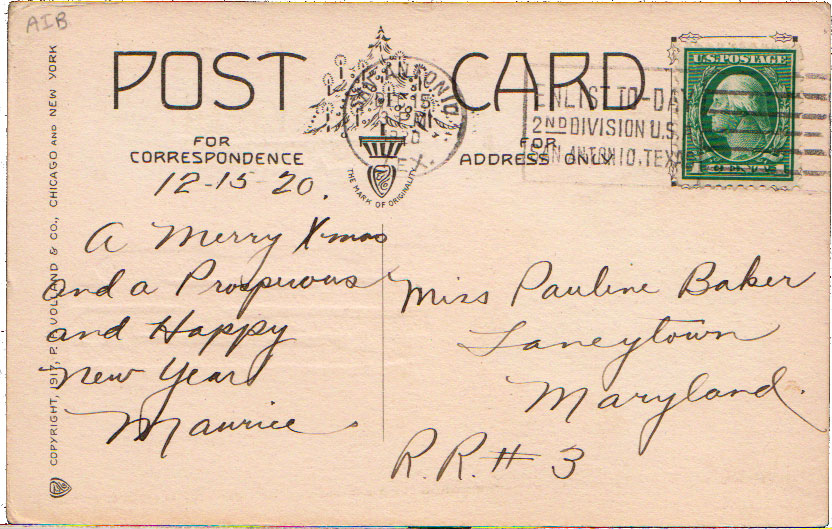 AIB
POST CARD
SAN ANTONIO
TEX.
ENLIST TO-DA
2ND DIVISION U.S.
SAN ANTONIO, TEXA
U.S. POSTAGE
FOR
CORRESPONDENCE
FOR
ADDRESS ONLY
THE MARK OF ORIGINALITY
12-15 20.
A Merry Xmas
and a Prosperous
and Happy
New Year
Maurice
Miss Pauline Baker
Taneytown
Maryland.
R.R. # 3
COPYRIGHT, 1917, P. F. VOLLAND & CO., CHICAGO AND NEW YORK